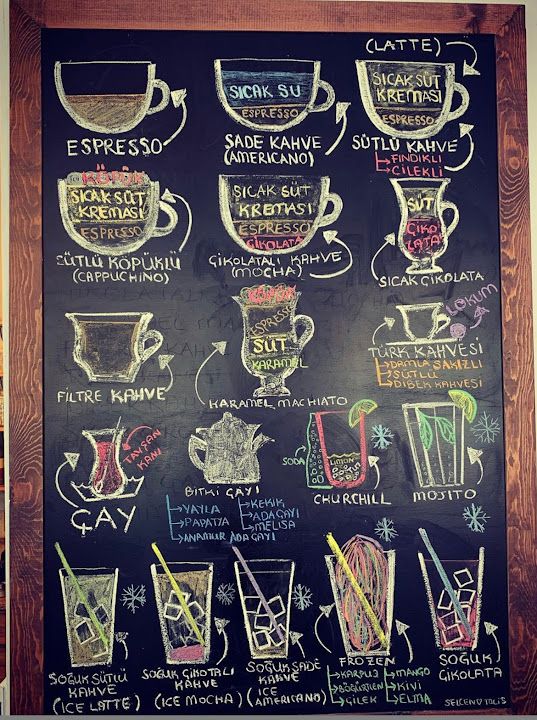 (LATTE)
ESPRESSO
SICAK SU
ESPRESSO
SADE KAHVE
(AMERICANO)
SICAK SÜT
KREMASI
ESPRESSO
SÜTLÜ KAHVE
FINDIKLI
ÇİLEKLİ
KÖPÜK
SICAK SÜT
KREMASI
ESPRESSO
SÜTLÜ KÖPÜKLÜ
(CAPPUCHINO)
SICAK SÜT
KREMASI
ESPRESSO
ÇİKOLATA
ÇİKOLATALI KAHVE
(MOCHA)
SÜT
ÇİKO
LATA
SICAK ÇİKOLATA
FİLTRE KAHVE
KÖPÜK
ESPRESSO
SÜT
KARAMEL
KARAMEL MACHIATO
LOKUM
TÜRK KAHVESİ
DAMLA SAKIZLI
SÜTLÜ
DİBEK KAHVESİ
TAVŞAN
KANI
ÇAY
BİTKİ ÇAYI
YAYLA
PAPATYA
ANAMUR ADAÇAYI
KEKİK
ADAÇAYI
MELİSA
SODA
LİMON
CHURCHILL
MOJİTO
SOĞUK SÜTLÜ
KAHVE
(ICE LATTE)
SOĞUK ÇİKOTALI
KAHVE
(ICE MOCHA)
SOĞUK SADE
KAHVE
(ICE
AMERICANO)
FROZEN
KARPUZ
BÖĞÜRTLEN
ÇİLEK
MANGO
KİVİ
ELMA
SOĞUK
ÇİKOLATA